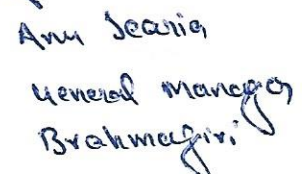 Anu Scaria
General Manager
Brahmagiri